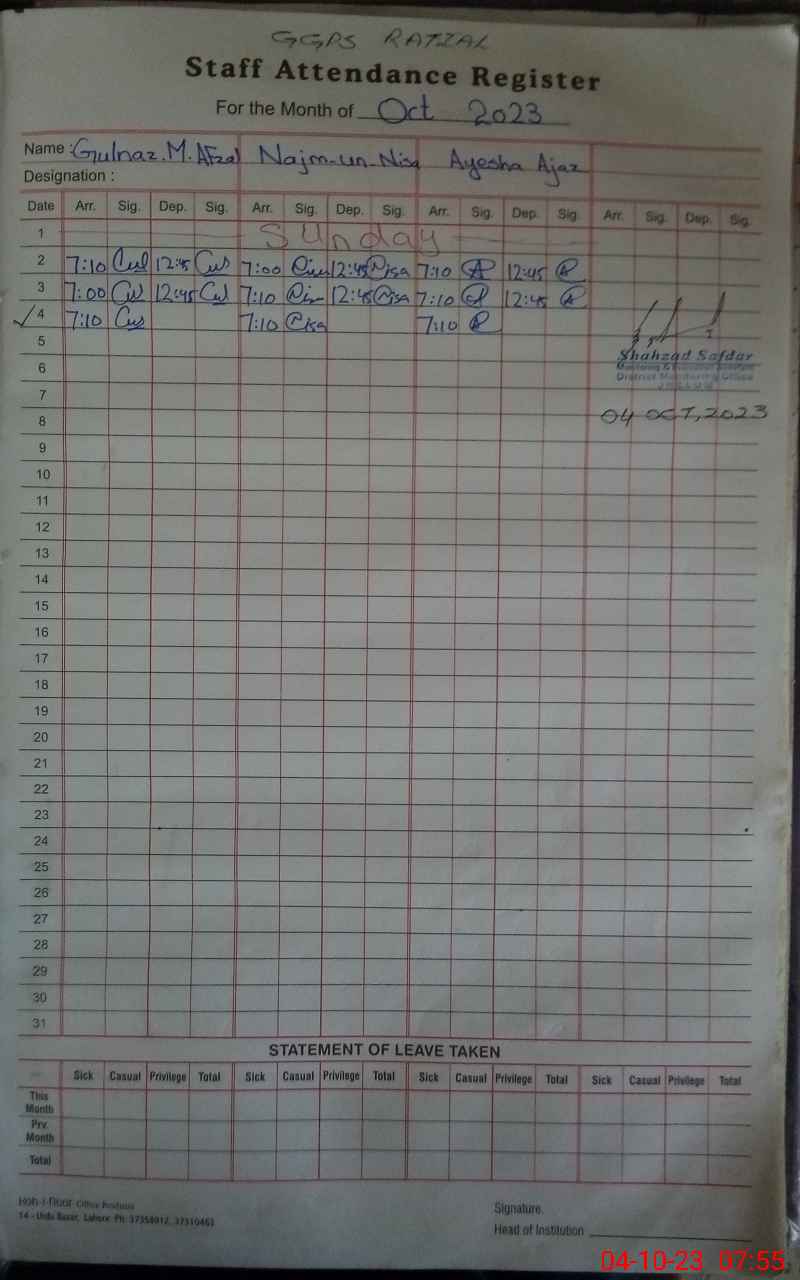 GGPS RATIAL
Staff Attendance Register
For the Month of Oct 2023
Name : Gulnaz. M. Afzal Najm-un-Nisa Ayesha Ajaz
Designation :
Date Arr. Sig. Dep. Sig. Arr. Sig. Dep. Sig. Arr. Sig. Dep. Sig. Arr. Sig. Dep. Sig.
1 Sunday
2 7:10 12:45 7:00 12:45 Nisa 7:10 12:45
3 7:00 12:45 7:10 12:45 Nisa 7:10 12:45
4 7:10 7:10 Nisa 7:10
5
6
Shahzad Safdar
Monitoring & Evaluation Assistant
District Monitoring Office
JHELUM
7
8
04 OCT, 2023
9
10
11
12
13
14
15
16
17
18
19
20
21
22
23
24
25
26
27
28
29
30
31
STATEMENT OF LEAVE TAKEN
Sick Casual Privilege Total Sick Casual Privilege Total Sick Casual Privilege Total Sick Casual Privilege Total
This Month
Prv. Month
Total
Office Products
14 - Urdu Bazar, Lahore. Ph: 37358012, 37310463
Signature.
Head of Institution
04-10-23 07:55